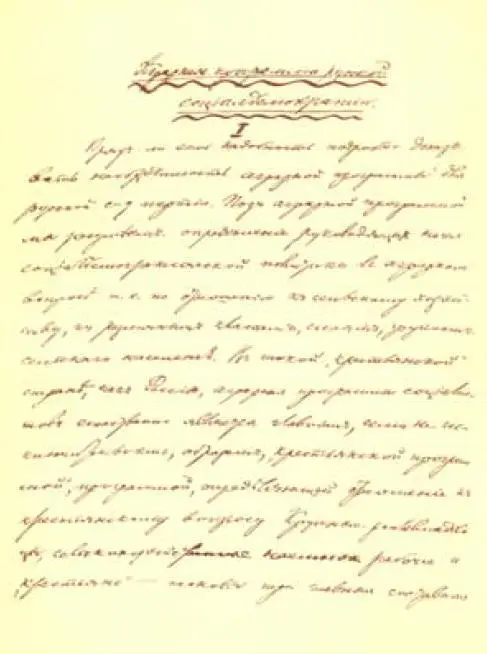 Аграрная программа русской
социалдемократии.
I
Вряд ли есть надобность подробно доказы-
вать необходимость аграрной программы для
русской с.-д. партии. Под аграрной программой
мы разумеем определение руководящих начал
социалдемократической политики в аграрном
вопросе, т. е. по отношению к сельскому хозяй-
ству, к различным классам, слоям, группам
сельского населения. В такой "крестьянской"
стране, как Россия, аграрная программа социалис-
тов естественно является главным, если не ис-
ключительно, образом, "крестьянской програм-
мой", программой, определяющей отношение к
крестьянскому вопросу. Крупные землевладель-
цы, сельские наемные рабочие и
"крестьяне" — таковы три главные составные